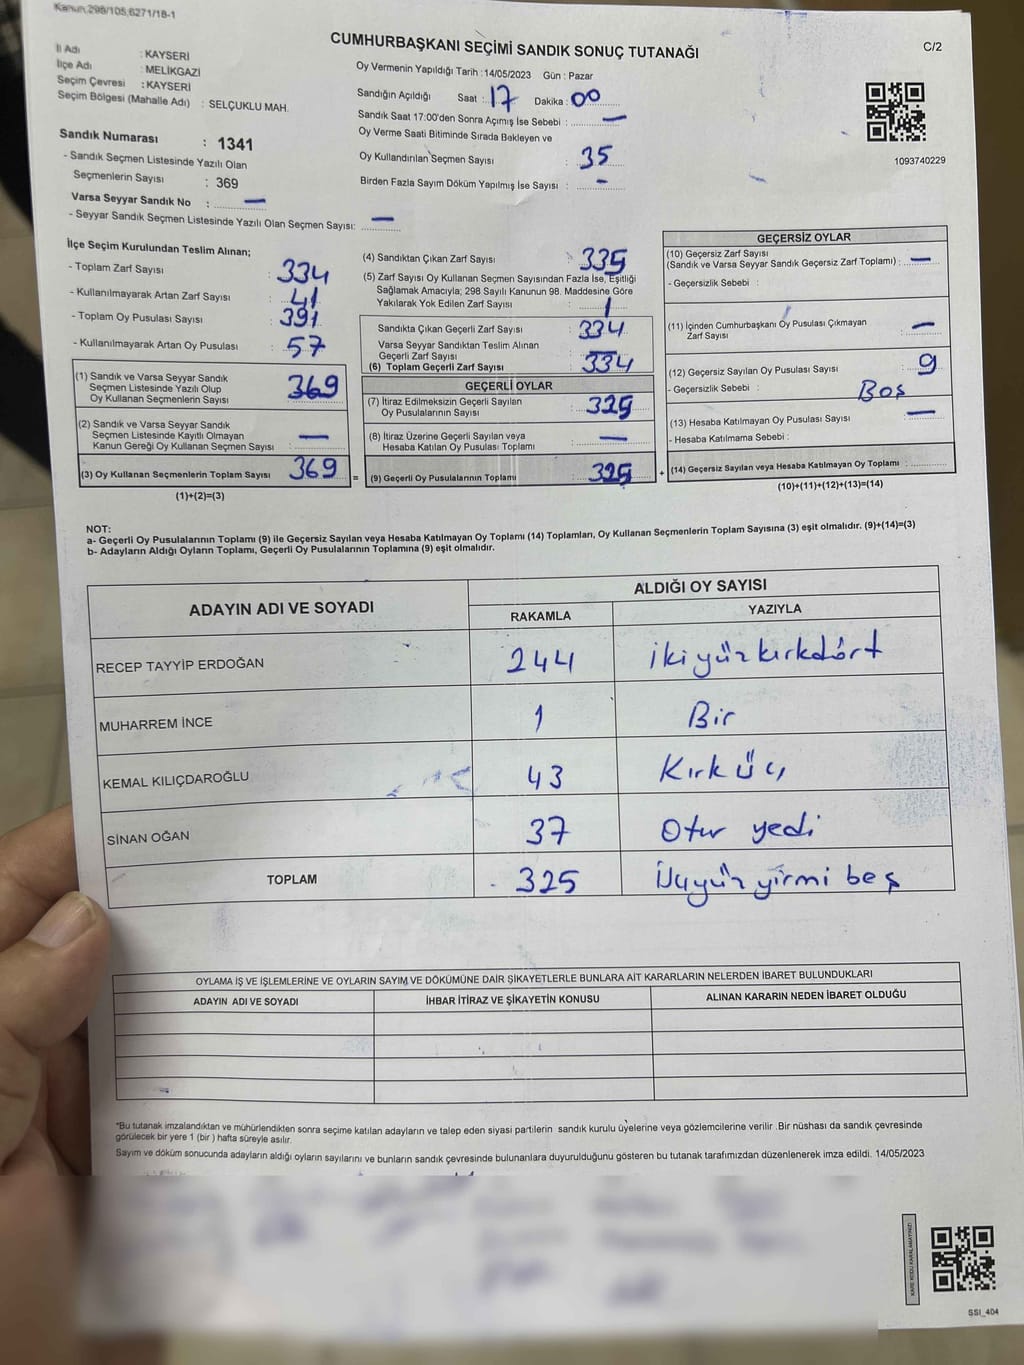 Kanun,298/105,6271/18-1
CUMHURBAŞKANI SEÇİMİ SANDIK SONUÇ TUTANAĞI
C/2
İl Adı : KAYSERİ
İlçe Adı : MELİKGAZİ
Seçim Çevresi : KAYSERİ
Seçim Bölgesi (Mahalle Adı) : SELÇUKLU MAH.
Sandık Numarası : 1341
- Sandık Seçmen Listesinde Yazılı Olan
Seçmenlerin Sayısı : 369
Varsa Seyyar Sandık No : —
- Seyyar Sandık Seçmen Listesinde Yazılı Olan Seçmen Sayısı: —
Oy Vermenin Yapıldığı Tarih : 14/05/2023 Gün : Pazar
Sandığın Açıldığı Saat : 17 Dakika : 00
Sandık Saat 17:00'den Sonra Açımış İse Sebebi : —
Oy Verme Saati Bitiminde Sırada Bekleyen ve
Oy Kullandırılan Seçmen Sayısı : 35
Birden Fazla Sayım Döküm Yapılmış İse Sayısı : -
1093740229
İlçe Seçim Kurulundan Teslim Alınan;
- Toplam Zarf Sayısı : 334
- Kullanılmayarak Artan Zarf Sayısı : 41
- Toplam Oy Pusulası Sayısı : 391
- Kullanılmayarak Artan Oy Pusulası : 57
(1) Sandık ve Varsa Seyyar Sandık
Seçmen Listesinde Yazılı Olup
Oy Kullanan Seçmenlerin Sayısı : 369
(2) Sandık ve Varsa Seyyar Sandık
Seçmen Listesinde Kayıtlı Olmayan
Kanun Gereği Oy Kullanan Seçmen Sayısı : —
(3) Oy Kullanan Seçmenlerin Toplam Sayısı : 369
(1)+(2)=(3)
(4) Sandıktan Çıkan Zarf Sayısı : 335
(5) Zarf Sayısı Oy Kullanan Seçmen Sayısından Fazla İse, Eşitliği
Sağlamak Amacıyla; 298 Sayılı Kanunun 98. Maddesine Göre
Yakılarak Yok Edilen Zarf Sayısı : 1
Sandıkta Çıkan Geçerli Zarf Sayısı : 334
Varsa Seyyar Sandıktan Teslim Alınan
Geçerli Zarf Sayısı : —
(6) Toplam Geçerli Zarf Sayısı : 334
GEÇERLİ OYLAR
(7) İtiraz Edilmeksizin Geçerli Sayılan
Oy Pusulalarının Sayısı : 325
(8) İtiraz Üzerine Geçerli Sayılan veya
Hesaba Katılan Oy Pusulası Toplamı : —
= (9) Geçerli Oy Pusulalarının Toplamı : 325
GEÇERSİZ OYLAR
(10) Geçersiz Zarf Sayısı
(Sandık ve Varsa Seyyar Sandık Geçersiz Zarf Toplamı) : —
- Geçersizlik Sebebi :
(11) İçinden Cumhurbaşkanı Oy Pusulası Çıkmayan
Zarf Sayısı : —
(12) Geçersiz Sayılan Oy Pusulası Sayısı : 9
- Geçersizlik Sebebi : Boş
(13) Hesaba Katılmayan Oy Pusulası Sayısı : —
- Hesaba Katılmama Sebebi :
+ (14) Geçersiz Sayılan veya Hesaba Katılmayan Oy Toplamı :
(10)+(11)+(12)+(13)=(14)
NOT:
a- Geçerli Oy Pusulalarının Toplamı (9) ile Geçersiz Sayılan veya Hesaba Katılmayan Oy Toplamı (14) Toplamları, Oy Kullanan Seçmenlerin Toplam Sayısına (3) eşit olmalıdır. (9)+(14)=(3)
b- Adayların Aldığı Oyların Toplamı, Geçerli Oy Pusulalarının Toplamına (9) eşit olmalıdır.
ADAYIN ADI VE SOYADI ALDIĞI OY SAYISI
RAKAMLA YAZIYLA
RECEP TAYYİP ERDOĞAN 244 ikiyüzkırkdört
MUHARREM İNCE 1 Bir
KEMAL KILIÇDAROĞLU 43 Kırküç
SİNAN OĞAN 37 Otuz yedi
TOPLAM 325 Üçyüz yirmi beş
OYLAMA İŞ VE İŞLEMLERİNE VE OYLARIN SAYIM VE DÖKÜMÜNE DAİR ŞİKAYETLERLE BUNLARA AİT KARARLARIN NELERDEN İBARET BULUNDUKLARI
ADAYIN ADI VE SOYADI İHBAR İTİRAZ VE ŞİKAYETİN KONUSU ALINAN KARARIN NEDEN İBARET OLDUĞU
*Bu tutanak imzalandıktan ve mühürlendikten sonra seçime katılan adayların ve talep eden siyasi partilerin sandık kurulu üyelerine veya gözlemcilerine verilir .Bir nüshası da sandık çevresinde
görülecek bir yere 1 (bir ) hafta süreyle asılır.
Sayım ve döküm sonucunda adayların aldığı oyların sayılarını ve bunların sandık çevresinde bulunanlara duyurulduğunu gösteren bu tutanak tarafımızdan düzenlenerek imza edildi. 14/05/2023
KARE KODU KARALAMAYINIZ!
SSI_404